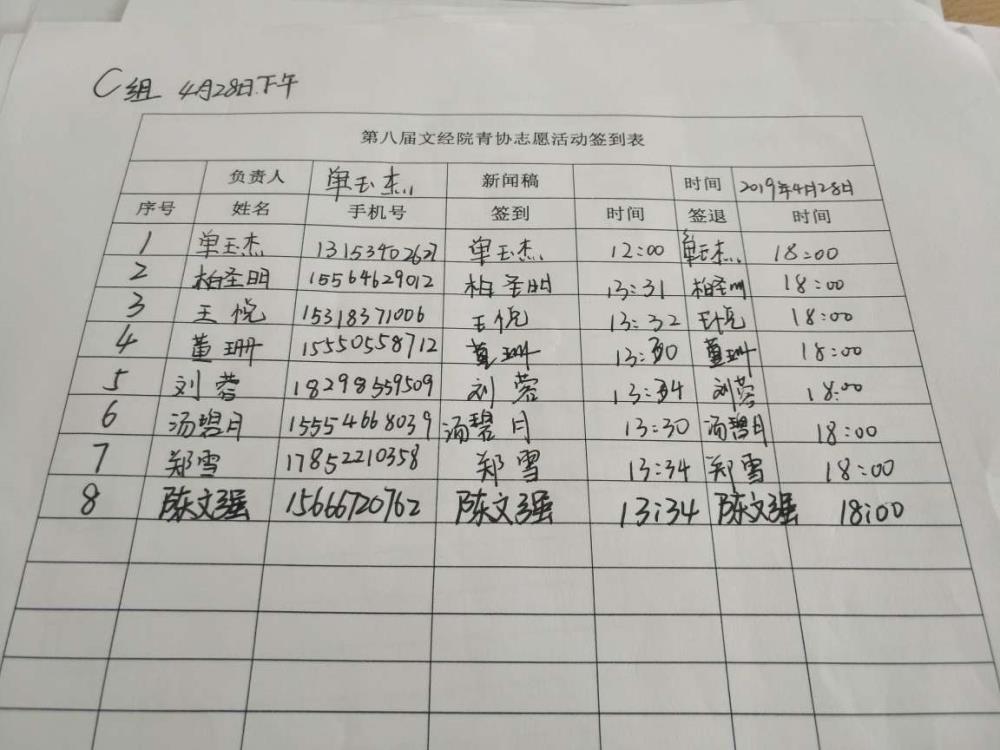 C组 4月28日下午
第八届文经院青协志愿活动签到表
负责人 单玉杰 新闻稿 时间 2019年4月28日
序号 姓名 手机号 签到 时间 签退 时间
1 单玉杰 13153902627 单玉杰 12:00 单玉杰 18:00
2 柏圣明 15564629012 柏圣明 13:31 柏圣明 18:00
3 王悦 15318371006 王悦 13:32 王悦 18:00
4 董珊 15550558712 董珊 13:30 董珊 18:00
5 刘蓉 18298359509 刘蓉 13:34 刘蓉 18:00
6 汤碧月 15554668039 汤碧月 13:30 汤碧月 18:00
7 郑雪 17852210358 郑雪 13:34 郑雪 18:00
8 陈文强 15666720762 陈文强 13:34 陈文强 18:00